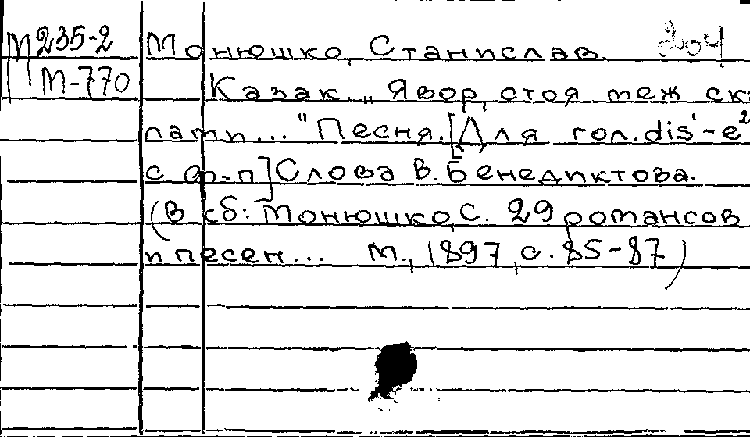 М235-2 Монюшко, Станислав. 204
М-770 Казак. „Явор, стоя меж ск
лами..." Песня. [Для гол. dis'-e²
с ф-п] Слова В. Бенедиктова.
(В сб: Монюшко, С. 29 романсов
и песен... М., 1897, с. 85-87)